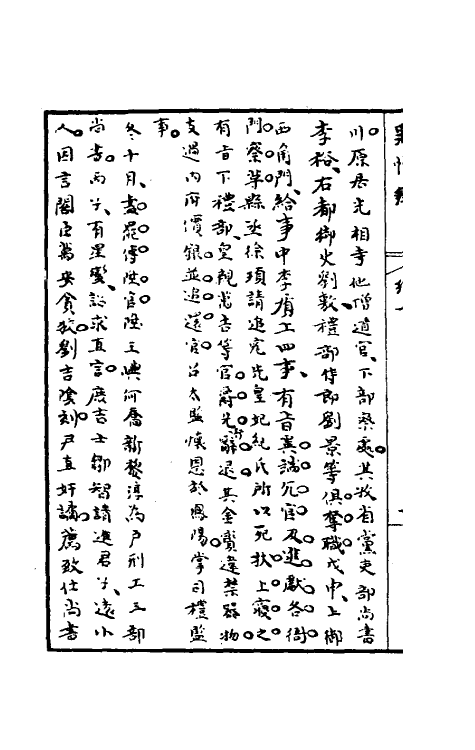 川原居光相寺他僧道官下部察处其放省黨吏部尚書
李裕右都御史劉敷禮部侍郎劉景等俱奪職戊申上御
西角門給事中李
上四事有旨
冗官及進獻各
門
縣丞徐頊請追究先皇妃紀氏所以死狀上寢之
有旨下禮部皇親萬吉等官爵先辭退其金寶違禁器物
支過内府價銀並追還官召太監懷恩於鳳陽掌司禮監
事
冬十月盡罷傳陞官陞王
何喬新黎淳為戶刑工三部
尚書丙子有星變詔求直言庶吉士鄒智請進君子遠小
人因言閣臣萬安貪狡劉吉陰刻尹直奸譎薦致仕尚書